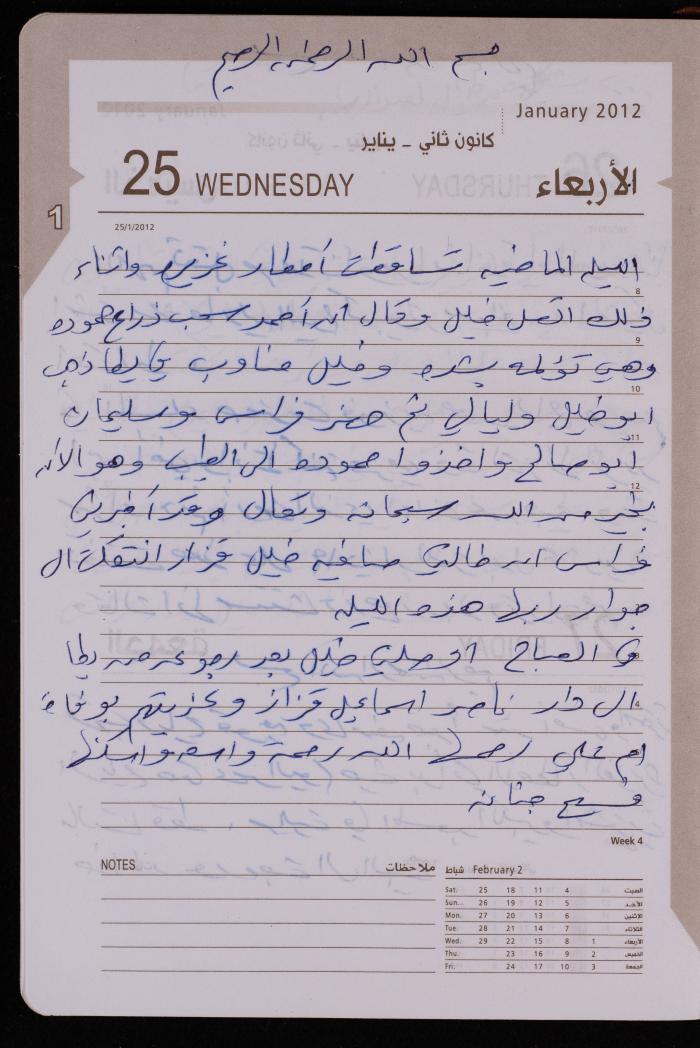 بسم الله الرحمن الرحيم
January 2012
كانون ثاني - يناير
25 WEDNESDAY الأربعاء
1
25/1/2012
الليله الماضيه تساقطت أمطار غزيره واثناء
8
ذلك اتصل خليل وقال ان أحمد سحب ذراع حموده
9
وهي تؤلمه بشده وخليل مناوب
10
ابو خليل وليالي ثم حضر فراس وسليمان
11
ابو صالح واخذوا حموده الى الطبيب وهو الان
12
بخير من الله سبحانه وتعالى وقد أخبرني
فراس ان خالتي صافيه خليل قزاز انتقلت الى
جوار ربها هذه الليله
في الصباح اوصلني خليل بعد رجوعه من
الى دار ناصر اسماعيل قزاز وعزيتهم بوفاة
4
ام علي رحمها الله رحمة واسعه واسكنها
فسيح جناته
Week 4
NOTES ملاحظات
شباط February 2
Sat. 25 18 11 4 السبت
Sun. 26 19 12 5 الأحد
Mon. 27 20 13 6 الإثنين
Tue. 28 21 14 7 الثلاثاء
Wed. 29 22 15 8 1 الأربعاء
Thu. 23 16 9 2 الخميس
Fri. 24 17 10 3 الجمعة